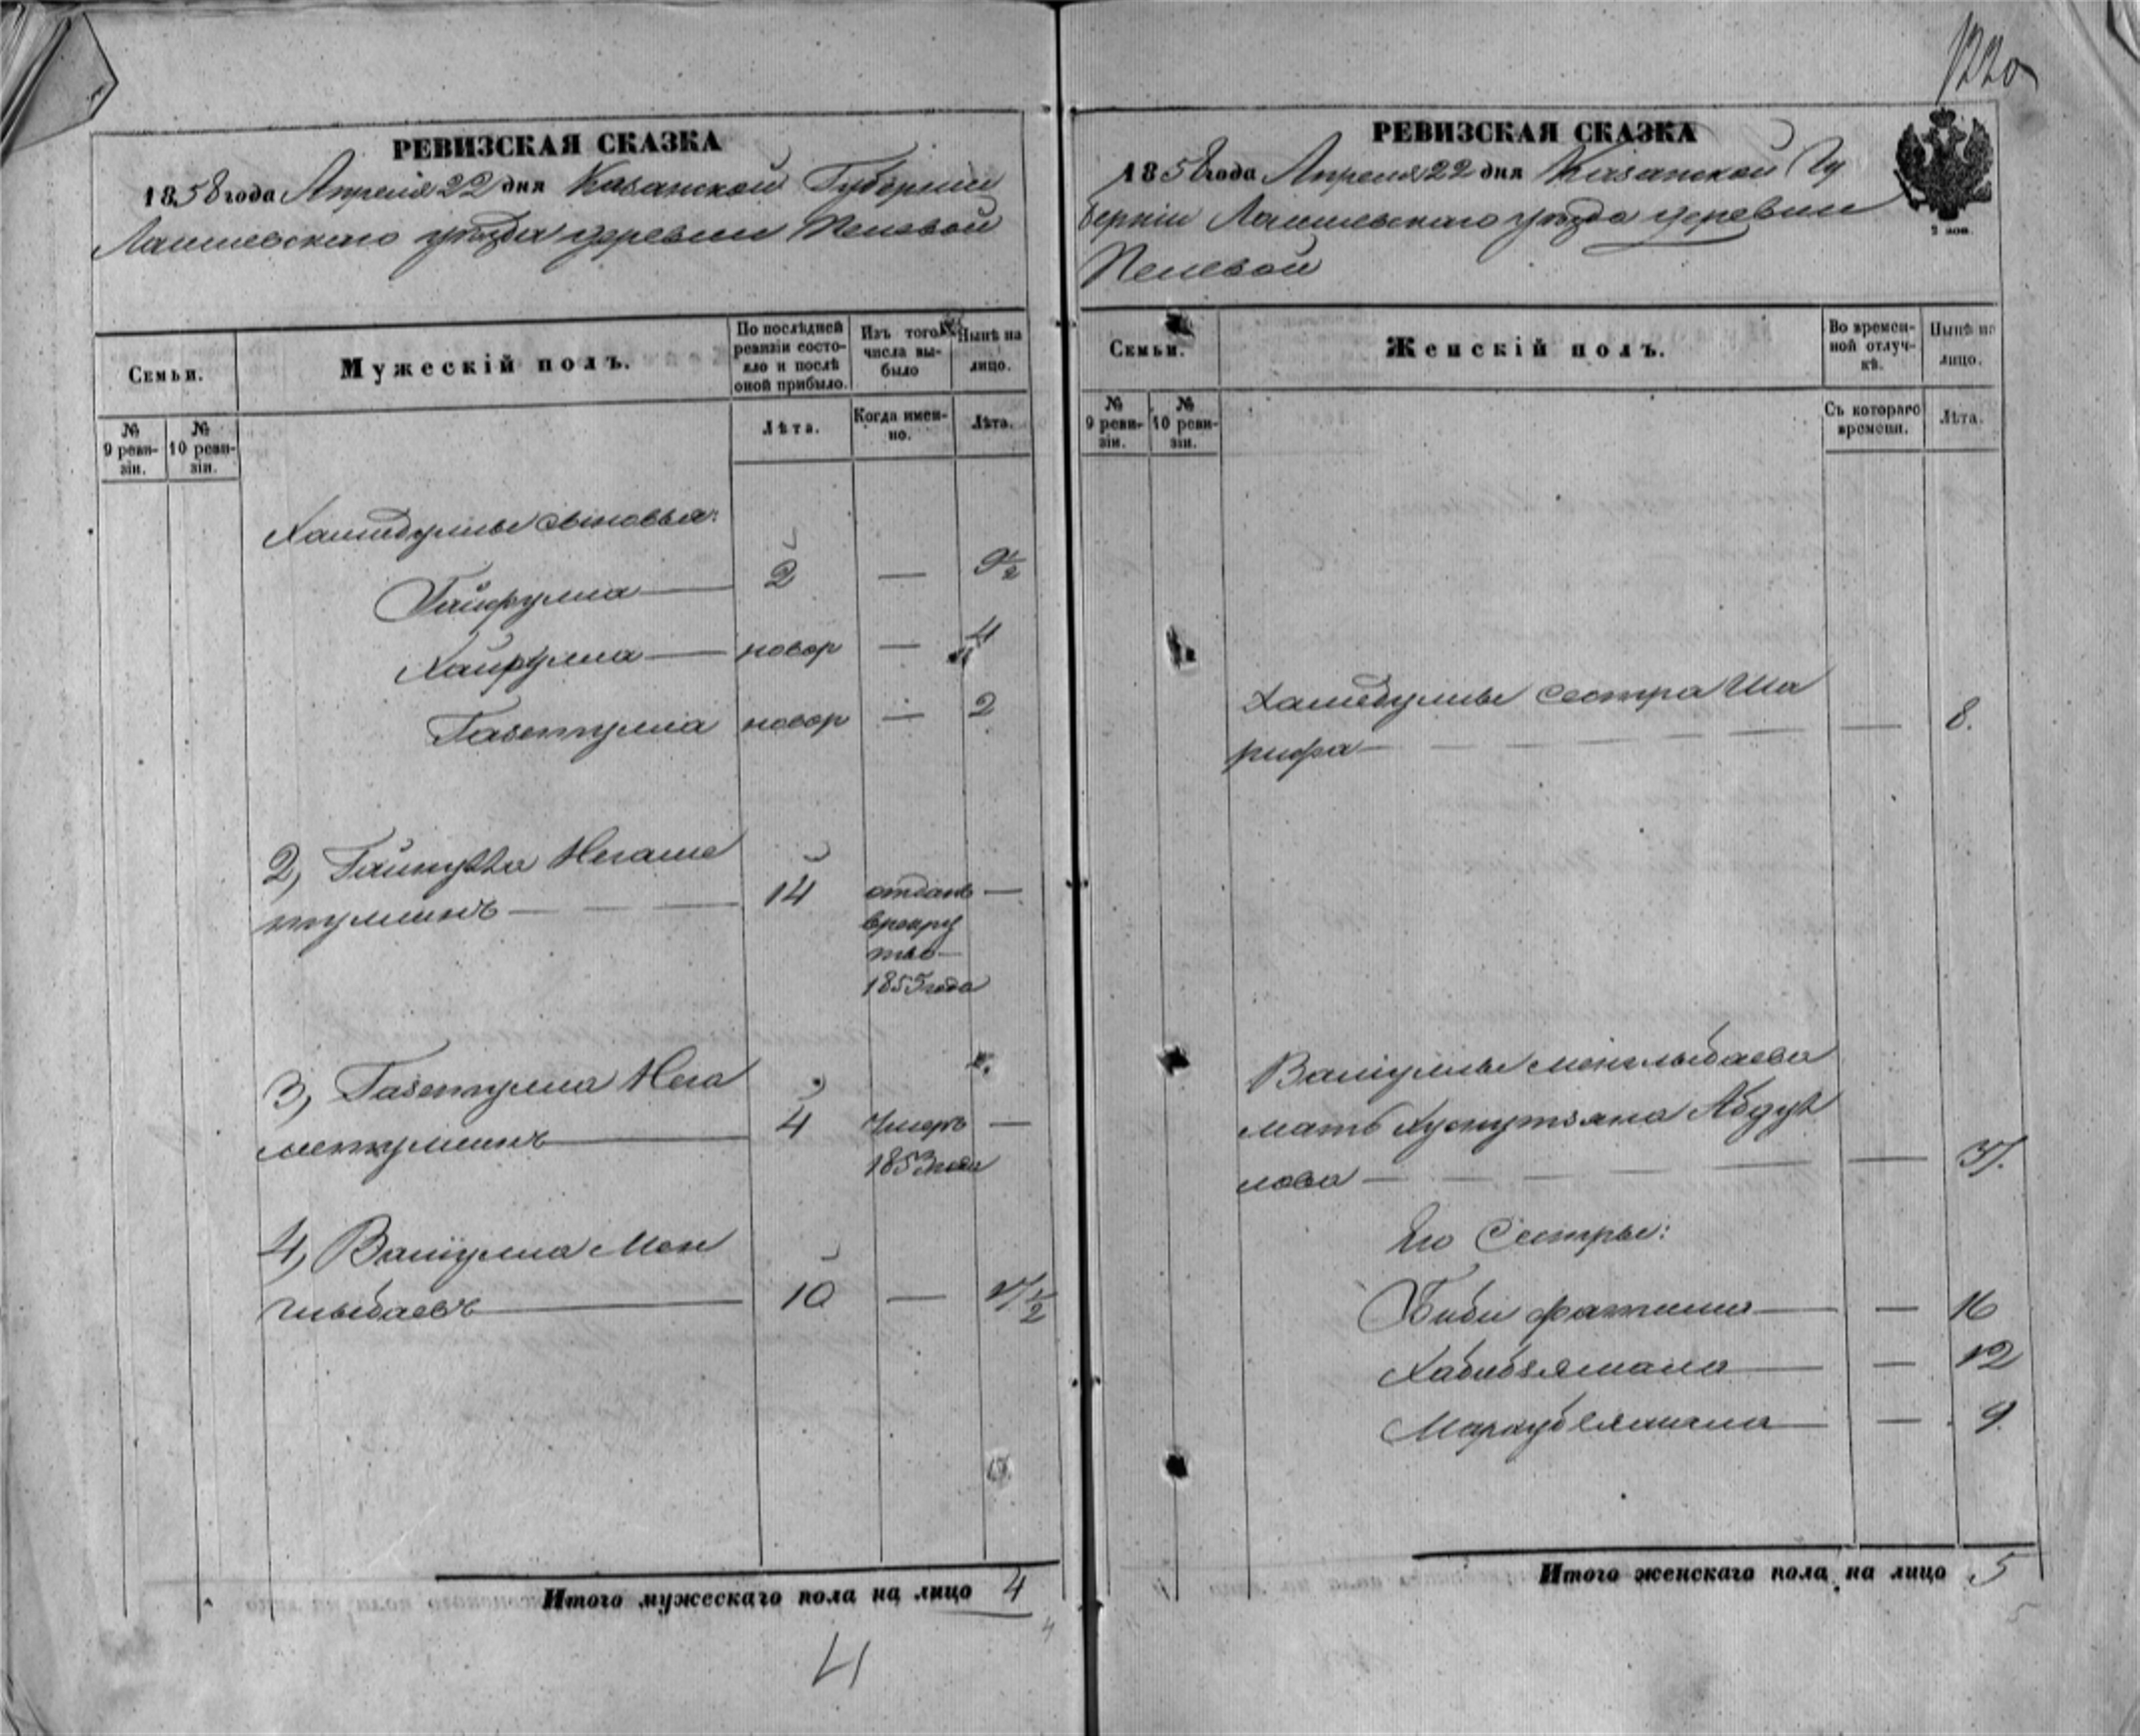 1220
РЕВИЗСКАЯ СКАЗКА
1858 года Апреля 22 дня Казанской Губернии
Лаишевского уезда деревни
Семьи.
Мужескій полъ.
По послѣдней ревизіи состояло и послѣ оной прибыло.
Изъ того числа выбыло
Нынѣ на лицо.
№ 9 ревизіи.
№ 10 ревизіи.
Лѣта.
Когда именно.
Лѣта.
сыновья:
Гайфулла 2 — 9 1/2
Хайрулла новор — 4
Газетулла новор — 2
2,
14 отданъ —
в рекру
ты —
1853 года
3, Газетулла Нега
метуллинъ 4 Умеръ —
1853 года
4, Валиулла Мен
глыбаевъ 10 —
Итого мужескаго пола на лицо 4
4
РЕВИЗСКАЯ СКАЗКА
1858 года Апреля 22 дня Казанской Гу
берніи Лаишевскаго уезда деревни
Семьи.
Женскій полъ.
Во временной отлучкѣ.
Нынѣ на лицо.
№ 9 ревизіи.
№ 10 ревизіи.
Съ котораго времени.
Лѣта.
сестра Ша
рифа — — 8.
Валиуллы Менглыбаева
мать
лова — —
Его Сестры:
Биби фатима — — 16
Хабибзямала — — 12
— — 9
Итого женскаго пола на лицо 5